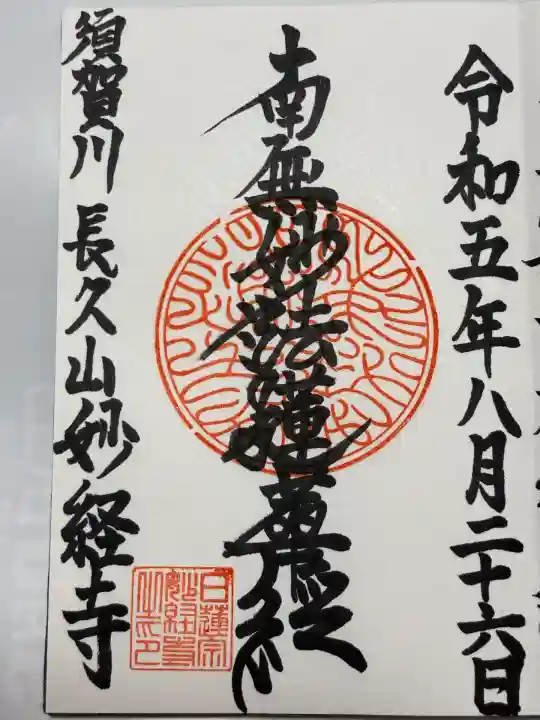 令和五年八月二十六日
南無妙法蓮華経
須賀川 長久山妙経寺
日蓮宗
妙経寺
之印